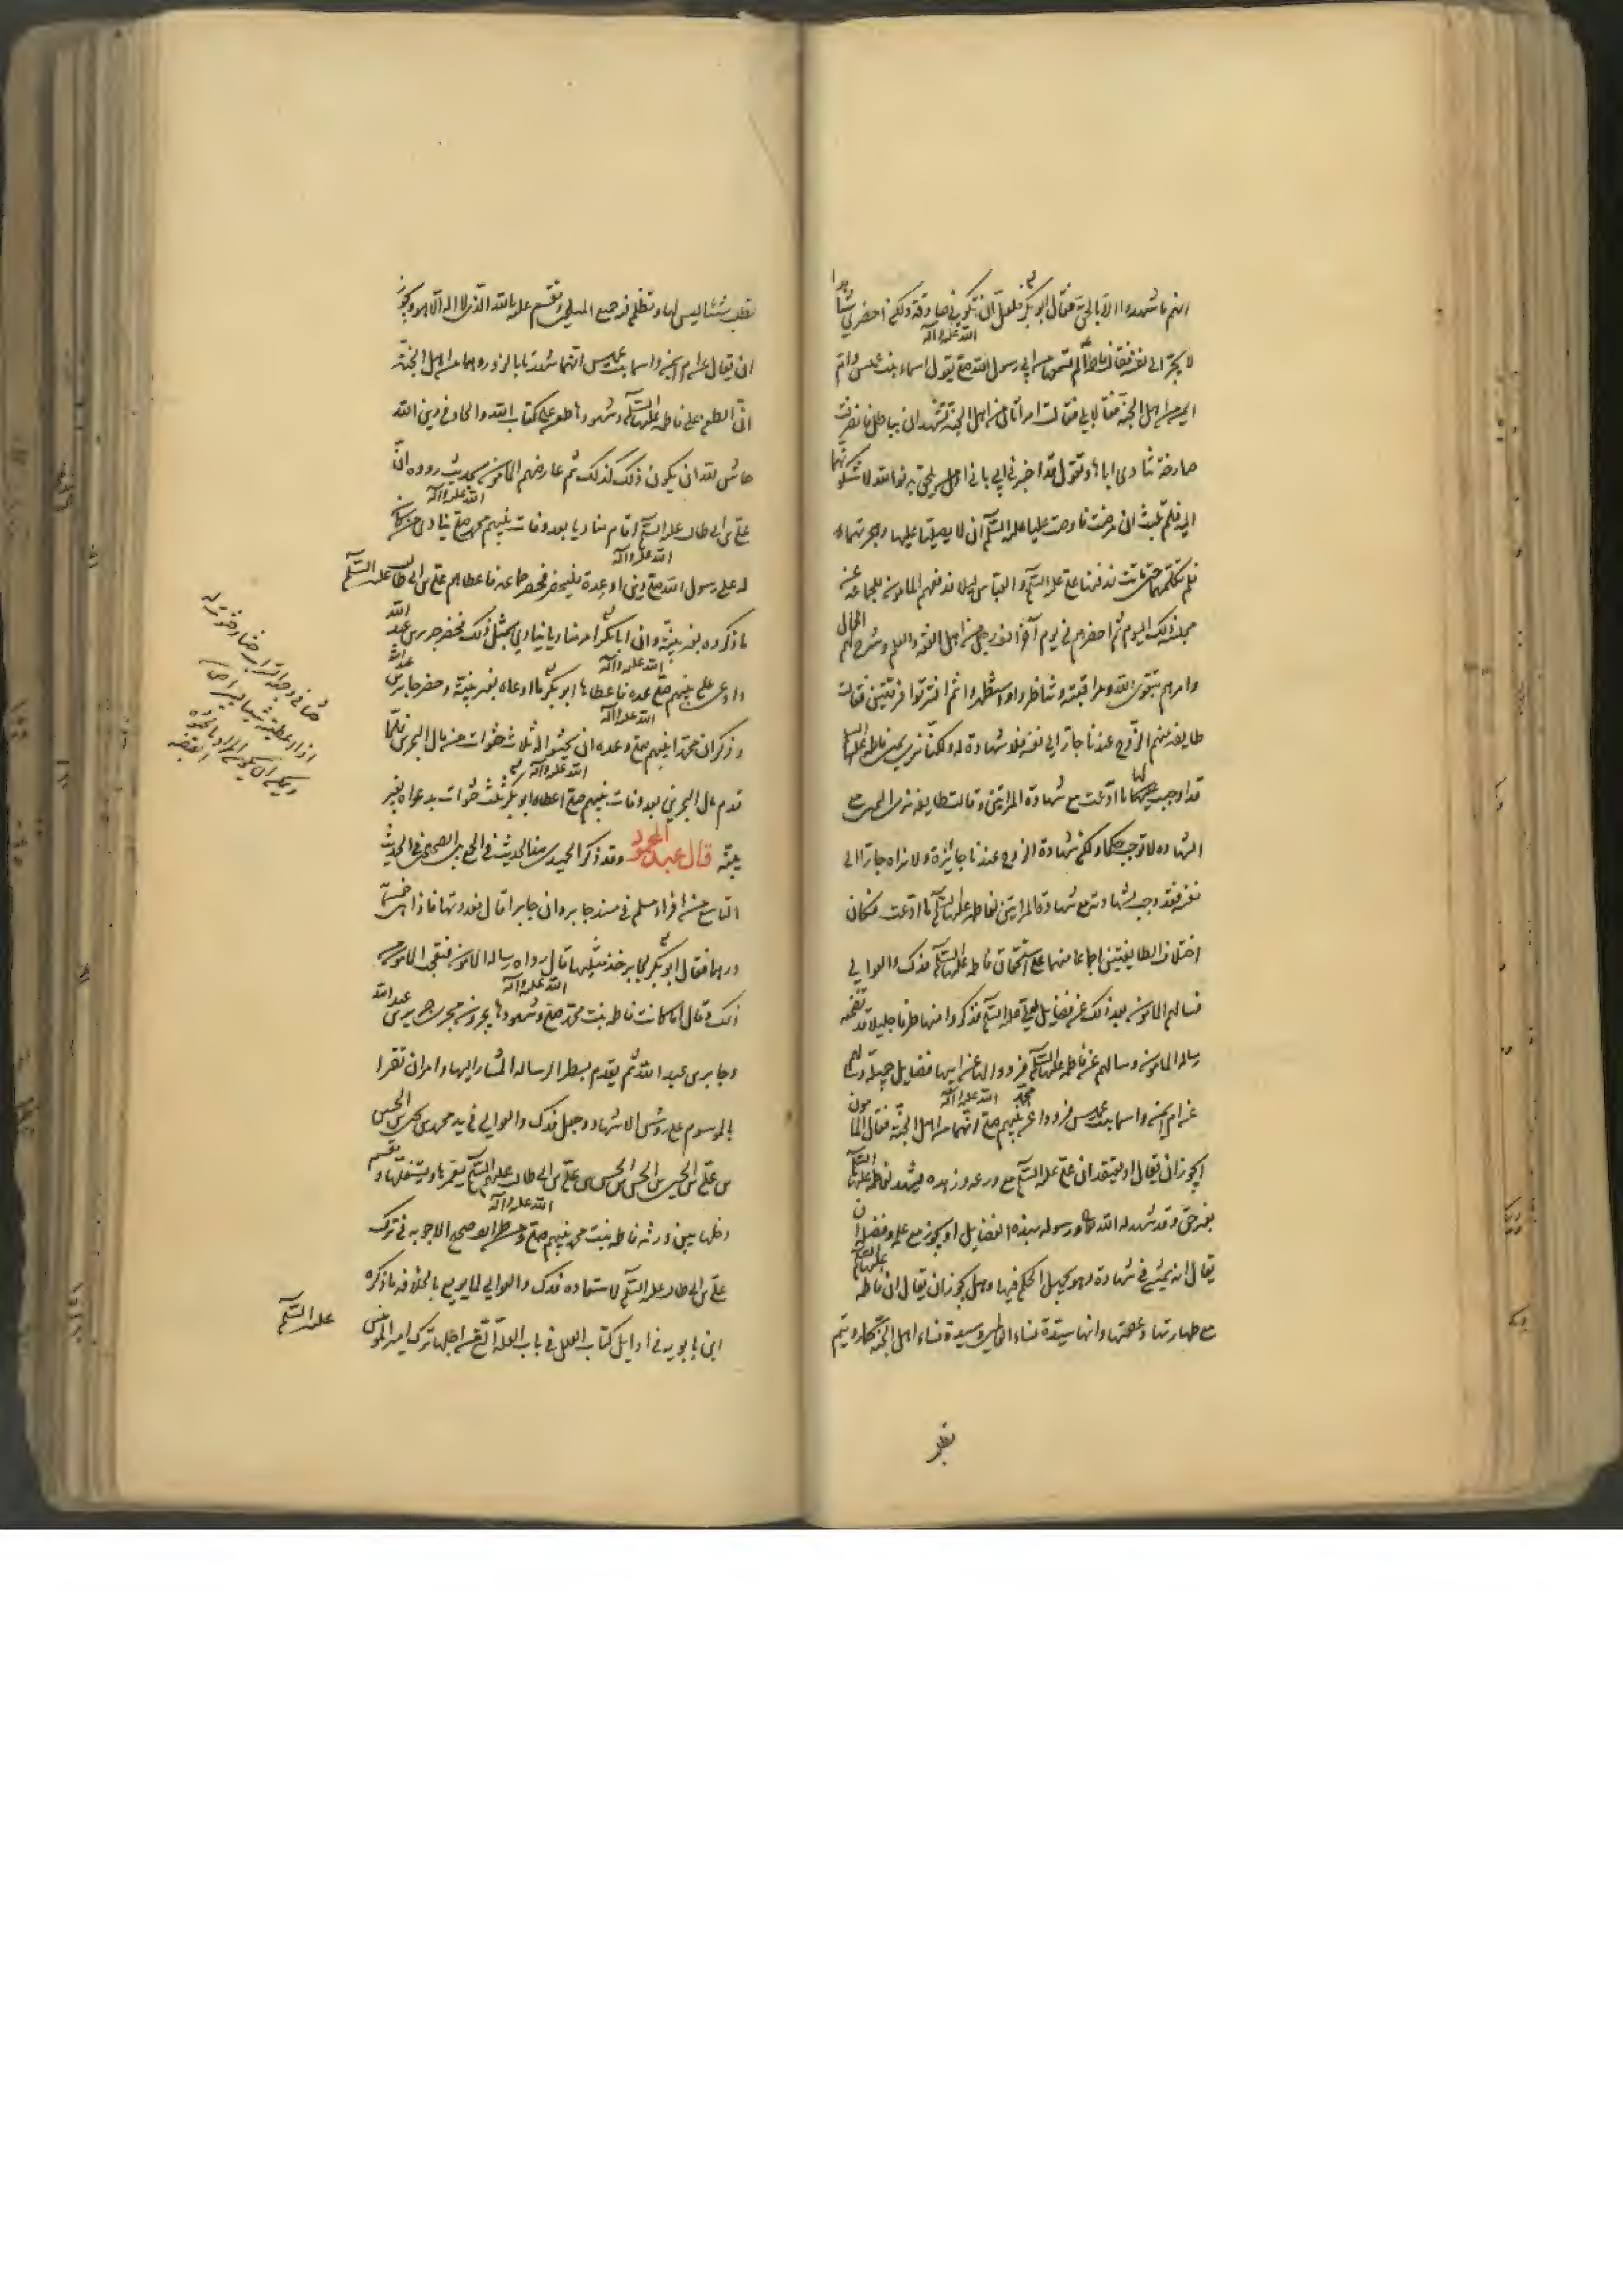 انهم ما شهدوا الا بالحق فقال ابو بكر فلعل ان تكوني صادقة ولكن احضري شاهدا
لا يجر الى نفسه فقالت فاطمة الم تسمعا من ابي رسول الله صلى الله عليه وآله يقول اسماء بنت عميس وام
ايمن من اهل الجنة فقالا بلى فقالت امراتان من اهل الجنة تشهدان بباطل فانصرفت
صارخة تنادي اباها وتقول قد اخبرني ابي باني اول من يلحق به فوالله لاشكونهما
اليه فلم تلبث ان مرضت فاوصت عليا عليه السلام ان لا يصليا عليها وهجرتهما
فلم تكلمهما حتى ماتت فدفنها علي عليه السلام والعباس ليلا فدفع المامون الجماعة عن
مجلسه ذلك اليوم ثم احضرهم في يوم آخر الف رجل من اهل الفقه والعلم وشرح لهم الحال
وامرهم بتقوى الله ومراقبته وتناظروا واستظهروا ثم افترقوا فرقتين فقالت
طايفة منهم الزوج عندنا جار الى نفسه فلا شهادة له ولكنا نرى يمين فاطمة عليها السلام
قد اوجبت لها ما ادعت مع شهادة المراتين وقالت طايفة نرى اليمين مع
الشهادة لا توجب حكما ولكن شهادة الزوج عندنا جائزة ولا نراه جارا الى
نفسه فقد وجب بشهادته مع شهادة المراتين لفاطمة عليها السلام ما ادعت فكان
اختلاف الطايفتين اجماعا منهما على استحقاق فاطمة عليها السلام فدك والعوالي
فسالهم المامون بعد ذلك عن فضايل لعلي عليه السلام فذكروا منها طرفا جليلا قد تضمنه
رسالة المامون وسالهم عن فاطمة عليها السلام فرووا لها عن ابيها فضايل جميلة وسالهم
عن ام ايمن واسماء بنت عميس فرووا عن نبيهم محمد صلى الله عليه وآله انهما من اهل الجنة فقال المامون
ايجوز ان يقال او يعتقد ان علي عليه السلام مع ورعه وزهده يشهد لفاطمة عليها السلام
بغير حق وقد شهد له الله تعالى ورسوله بهذه الفضايل او يجوز مع علمه وفضله ان
يقال انه يمشي في شهادة وهو يجهل الحكم فيها وهل يجوز ان يقال ان فاطمة عليها السلام
مع طهارتها وعصمتها وانها سيدة نساء العالمين وسيدة نساء اهل الجنة كما رويتم
تطلب
تطلب شيئا ليس لها وتظلم فيه جميع المسلمين وتقسم عليه بالله الذي لا اله الا هو ويجوز
ان يقال عن ام ايمن واسماء بنت عميس انهما شهدتا بالزور وهما من اهل الجنة
ان الطعن على فاطمة عليها السلام وشهودها طعن على كتاب الله والحاد في دين الله
حاش لله ان يكون ذلك كذلك ثم عارضهم المامون بحديث رووه ان
علي بن ابي طالب عليه السلام اقام مناديا بعد وفات نبيهم محمد صلى الله عليه وآله ينادي من كان
له على رسول الله صلى الله عليه وآله دين او عدة فليحضر فحضر جماعة فاعطاهم علي بن ابي طالب عليه السلام
ما ذكروه بغير بينة وان ابا بكر امر مناديا ينادي بمثل ذلك فحضر جرير بن عبد الله
وادعى على نبيهم صلى الله عليه وآله عدة فاعطاها ابو بكر ما ادعاه بغير بينة وحضر جابر بن عبد الله
وذكر ان محمدا نبيهم صلى الله عليه وآله وعده ان يحثو له ثلاث حثوات من مال البحرين فلما
قدم مال البحرين بعد وفات نبيهم صلى الله عليه وآله اعطاه ابو بكر ثلث حثوات بدعواه بغير
بينة قال عبد المحمود وقد ذكر الحميدي هذا الحديث في الجمع بين الصحيحين في الحديث
التاسع من افراد مسلم في مسند جابر وان جابرا قال فعددتها فاذا هي خمسمائة
درهما فقال ابو بكر لجابر خذ مثليها قال رواه رسالة المامون فتعجب المامون من
ذلك وقال اما كانت فاطمة بنت محمد صلى الله عليه وآله وشهودها يجرون مجرى جرير بن عبد الله
وجابر بن عبد الله ثم تقدم بسطر الرسالة المشار اليها وامر ان تقرا
بالموسم على رؤس الاشهاد وجعل فدك والعوالي في يد محمد بن يحيى بن الحسين
بن علي بن الحسين بن علي بن ابي طالب عليهم السلام يعمرها ويستغلها ويقسم
دخلها بين ورثة فاطمة بنت محمد نبيهم صلى الله عليه وآله ومن طرايف صحيح الاجوبة في ترك
علي بن ابي طالب عليه السلام لاستعادة فدك والعوالي لما بويع بالخلافة ما ذكره
ابن بابويه في اوايل كتاب العلل في باب العلة التي من اجلها ترك امير المؤمنين
عليه السلام